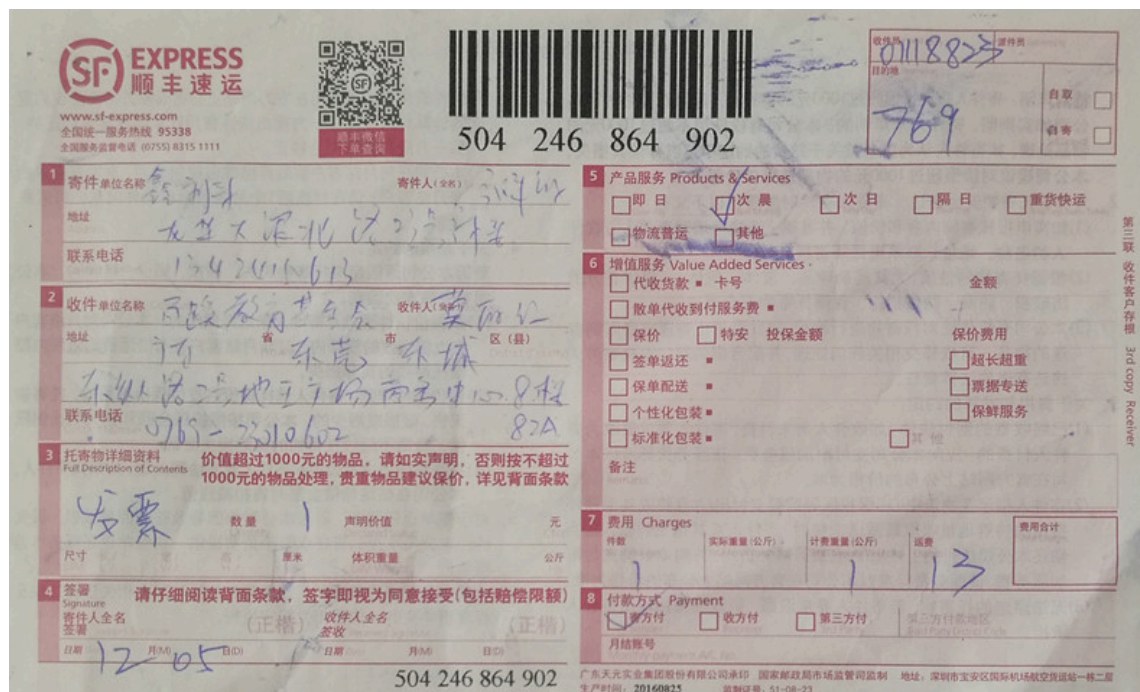 SF EXPRESS
顺丰速运
www.sf-express.com
全国统一服务热线 95338
全国服务监督电话 (0755) 8315 1111
SF
顺丰微信
下单查询
504 246 864 902
收件员 派件员
07118823
目的地
769
自取
自寄
1 寄件单位名称 寄件人(全名)
地址
联系电话
2 收件单位名称 收件人(全名)
地址 省 东莞 市 东城 区(县)
8栋
联系电话 82A
3 托寄物详细资料 价值超过1000元的物品，请如实声明，否则按不超过
Full Description of Contents 1000元的物品处理，贵重物品建议保价，详见背面条款
发票
数量 1 声明价值 元
尺寸 厘米 体积重量 公斤
4 签署 请仔细阅读背面条款，签字即视为同意接受(包括赔偿限额)
Signature
寄件人全名 收件人全名
签署 (正楷) 签收 (正楷)
日期 12 月(M) 05 日(D) 日期 月(M) 日(D)
504 246 864 902
5 产品服务 Products & Services
即日 次晨 次日 隔日 重货快运
物流普运 其他
6 增值服务 Value Added Services
代收货款 卡号 金额
散单代收到付服务费
保价 特安 投保金额 保价费用
签单返还 超长超重
保单配送 票据专送
个性化包装 保鲜服务
标准化包装 其他
备注
7 费用 Charges
件数 实际重量(公斤) 计费重量(公斤) 运费 费用合计
1 1 13
8 付款方式 Payment
寄方付 收方付 第三方付 第三方付款地区
月结账号
广东天元实业集团股份有限公司承印 国家邮政局市场监管司监制 地址：深圳市宝安区国际机场航空货运站一栋二层
生产时间：20160825 监制证号：51-08-23
第三联 收件客户存根 3rd copy Receiver